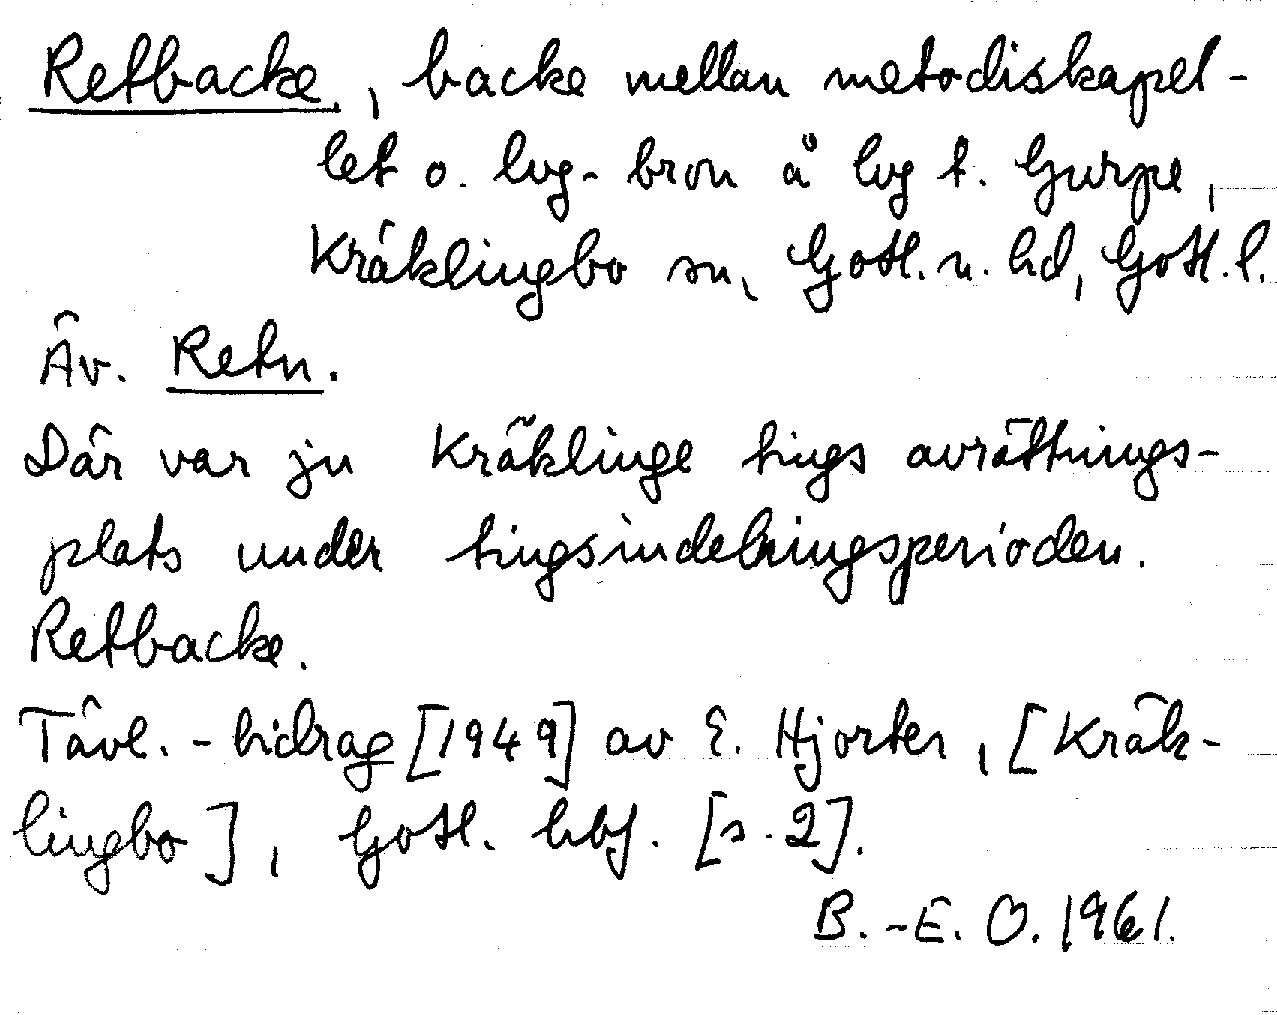 Retbacke, backe mellan metodiskapel-
let o. lvg-bron å lvg t. Gurpe,
Kräklingbo sn, Gotl. n. hd, Gotl. l.
Äv. Retn.
Där var ju Kräklinge tings avrättnings-
plats under tingsindelningsperioden.
Retbacke.
Tävl.-bidrag [1949] av E. Hjorter, [Kräk-
lingbo], Gotl. hbf. [s. 2].
B.-E. O. 1961.